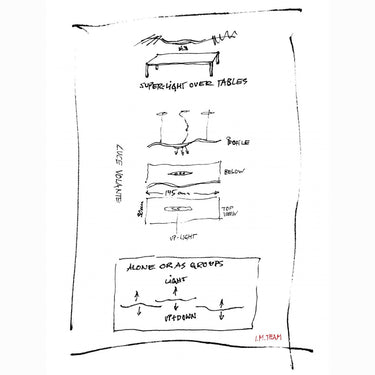 SUPERLIGHT OVER TABLES
PROFILE
BELOW
145 cm
35cm
TOP
VIEW
UP-LIGHT
LUCE VOLANTE
ALONE OR AS GROUPS
LIGHT
UP+DOWN
I.M. TEAM